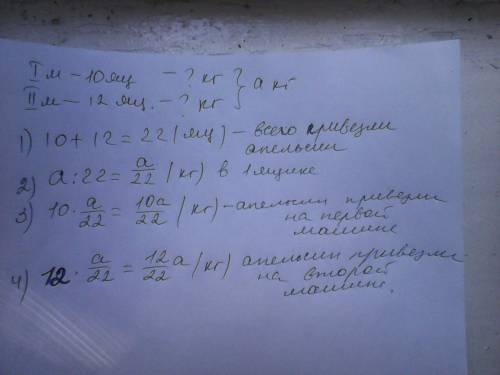 I м – 10 ящ – ? кг } а кг
II м – 12 ящ. – ? кг
1) 10 + 12 = 22 (ящ) – всего привезли
апельсин
2) а : 22 = а/22 (кг) в 1 ящике
3) 10 · а/22 = 10а/22 (кг) – апельсин привезли
на первой
машине
4) 12 · а/22 = 12/22 а (кг) апельсин привезли
на второй
машине.